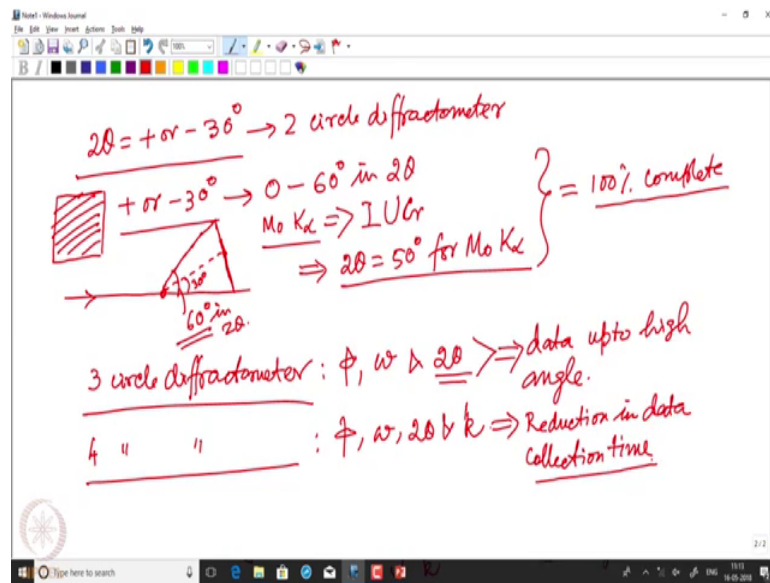 Note1 - Windows Journal
File Edit View Insert Actions Tools Help
100%
B I
2θ = + or - 30° → 2 circle diffractometer
+ or - 30° → 0 - 60° in 2θ
Mo Kα ⇒ IUCr
⇒ 2θ = 50° for Mo Kα
= 100% complete
30°
60° in
2θ.
3 circle diffractometer : φ, ω & 2θ ⇒ data upto high
angle.
4 " " : φ, ω, 2θ & k ⇒ Reduction in data
collection time.
2/2
Type here to search
ENG
11:13
16-05-2018